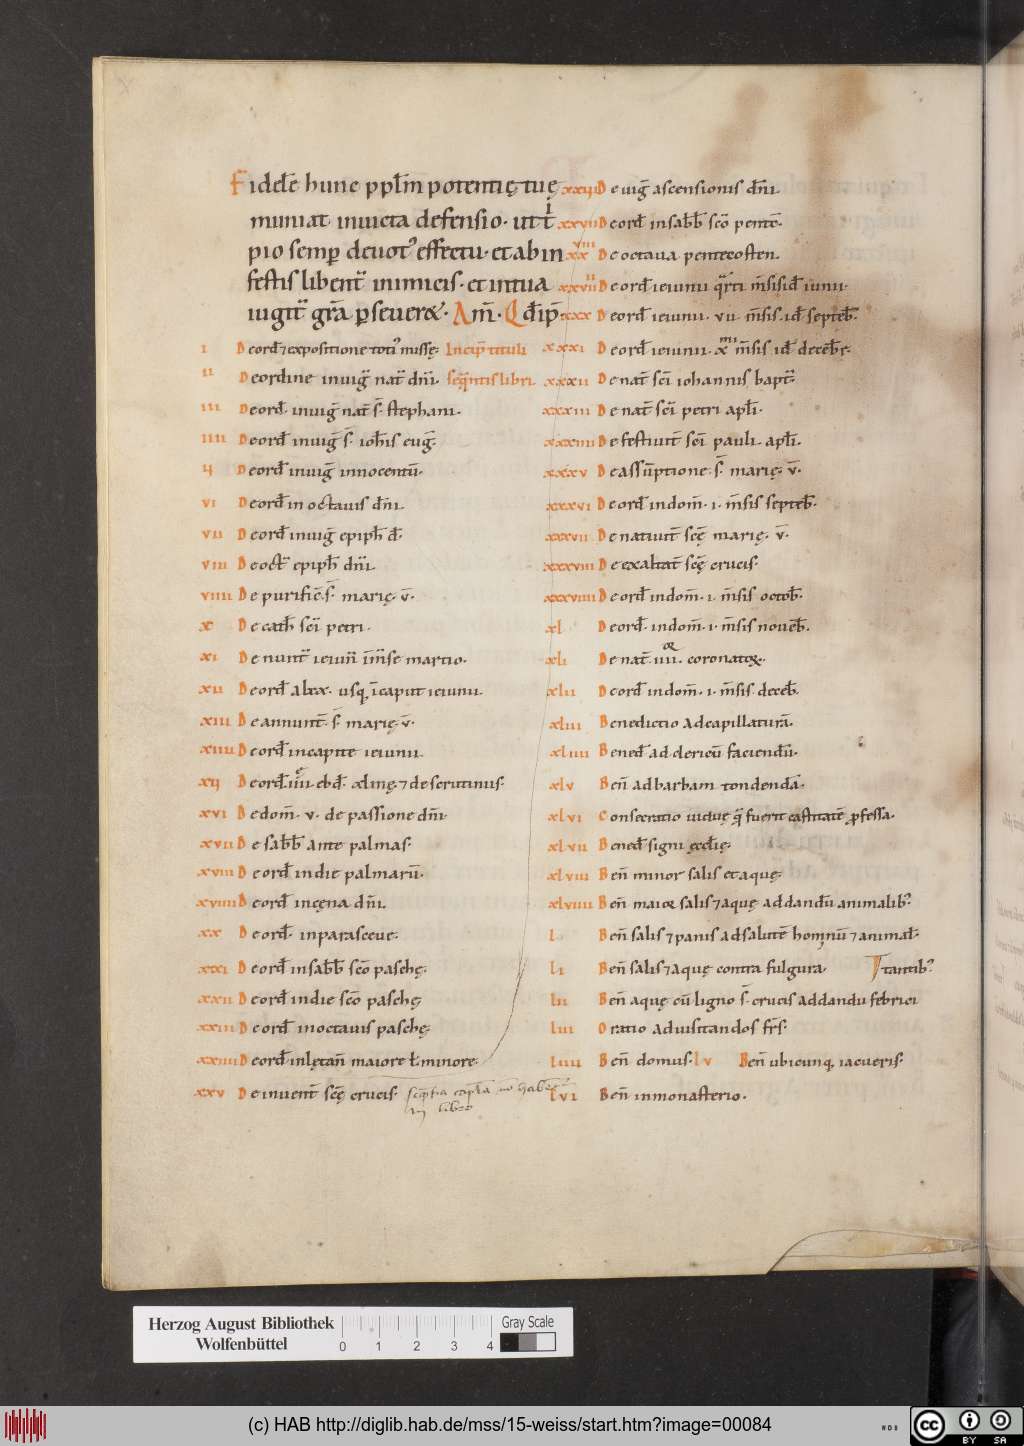 Fidele̅ hunc pp̅lm potentię tuę
muniat inuicta defensio. ut t̅
pio semp̲ deuotꝰ effectu. et ab in
festis libent̅ inimicis. et in tua
iugit̅ gr̅a p̲seueret. Am̅. Qd̅ ip̅.
I De ord̅ ⁊ expositione totiꝰ missę. Incip̅ tituli
II De ordine in uig̅ nat̅ dn̅i. seq̅ntis libri
III De ord̅ in uig̅ nat̅ s̅. stephani.
IIII De ord̅ in uig̅ s̅. ioh̅is eug̅.
V De ord̅ in uig̅ innocentu̅.
VI De ord̅ in octauis dn̅i.
VII De ord̅ in uig̅ epiph̅ d̅.
VIII De oct̅ epiph̅ dn̅i.
VIIII De purific̅. s̅. marię. v̅.
X De cath̅ sc̅i petri.
XI De nunt̅ ieiun̅ i̅ m̅se martio.
XII De ord̅ a lxx. usq̨ i̅ caput ieiunii.
XIII De annunt̅. s̅. marię. v̅.
XIIII De ord̅ in capite ieiunii.
XV De ord̅ IIII ebd̅. xlmę. ⁊ de scrutiniis.
XVI De dom̅. v. de passione dn̅i.
XVII De sabb̅ ante palmas.
XVIII De ord̅ in die palmaru̅.
XVIIII De ord̅ in cęna dn̅i.
XX De ord̅. in parasceue.
XXI De ord̅ in sabb̅ sc̅o paschę.
XXII De ord̅ in die sc̅o paschę
XXIII De ord̅ in octauis paschę.
XXIIII De ord̅ in lętan̅ maiore ł minore.
XXV De inuent̅ scę̅ crucis.
libro
XXVI De uig̅ ascensionis dn̅i.
XXVII De ord̅ in sabb̅ sc̅o pente̅.
XXVIII De octaua pentecosten.
XXVIIII De ord̅ ieiunii q̅rti m̅sis id̅ iunii.
XXX De ord̅ ieiunii. VII m̅sis. id̅ septeb̅.
XXXI De ord̅ ieiunii. X mi m̅sis id̅ deceb̅ę.
XXXII De nat̅ sc̅i iohannis bapt̅.
XXXIII De nat̅ sc̅i petri apl̅i.
XXXIIII De festiuit̅ sc̅i pauli. apl̅i.
XXXV De assu̅ptione. s̅. marię. v̅.
XXXVI De ord̅ in dom̅. I. m̅sis septeb̅.
XXXVII De natiuit̅ scę̅ marię. v̅.
XXXVIII De exaltat̅ scę̅ crucis.
XXXVIIII De ord̅ in dom̅. I. m̅sis octob̅.
XL De ord̅. in dom̅. I. m̅sis noueb̅.
XLI De nat̅ IIII. or coronatoꝝ.
XLII De ord̅ in dom̅. I. m̅sis. deceb̅.
XLIII Benedictio ad capillatura̅.
XLIIII Bened̅ ad clericu̅ faciendu̅.
XLV Ben̅ ad barbam tondenda̅.
XLVI Consecratio uiduę q̅ fuerit castitate̅ p̲fessa.
XLVII Bened̅ signi ęcclię̅.
XLVIII Ben̅ minor salis et aquę.
XLVIIII Ben̅ maior salis ⁊ aquę ad dandu̅ animalibꝰ.
L Ben̅ salis ⁊ panis ad salute̅ hominu̅ ⁊ animal̅.
LI Ben̅ salis ⁊ aquę contra fulgura. Ttantibꝰ
LII Ben̅ aquę cu̅ ligno s̅. crucis ad dandu febrici
LIII Oratio ad uisitandos fr̅s.
LIIII Ben̅ domus. LV Ben̅ ubicunq̨ iacueris.
LVI Ben̅ in monasterio.
Herzog August Bibliothek
Wolfenbüttel
0 1 2 3 4
Gray Scale
(c) HAB http://diglib.hab.de/mss/15-weiss/start.htm?image=00084
WDB
cc BY SA